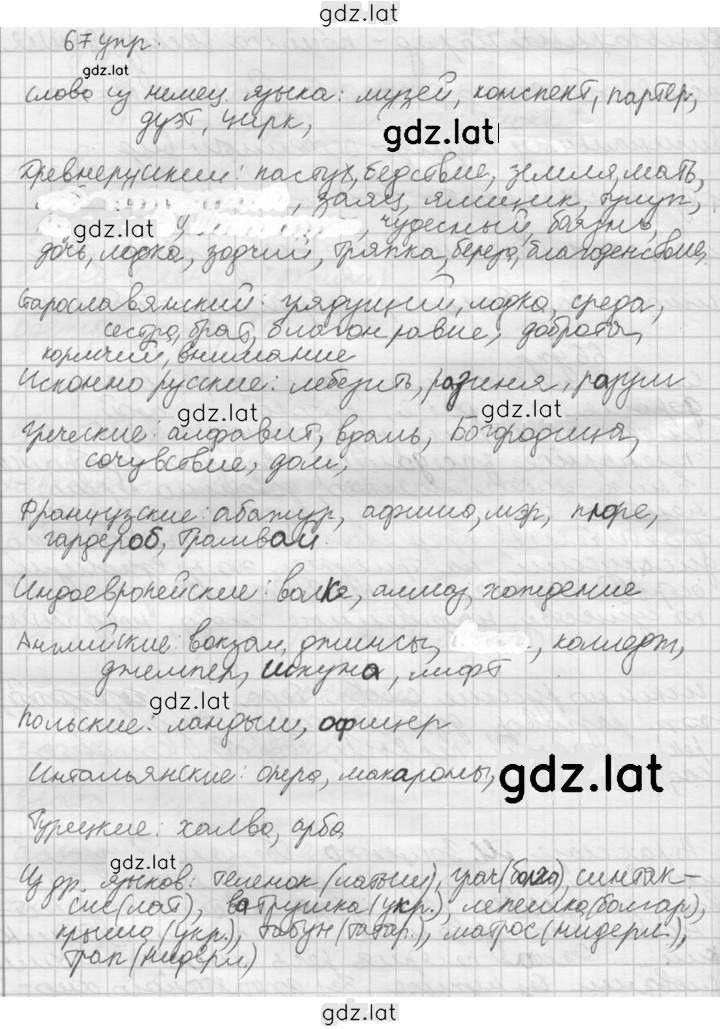 gdz.lat
67 упр.
gdz.lat
слово из немец. языка: музей, конспект, партер,
дуэт, цирк,
gdz.lat
Древнерусский: пастух, бедствие, земля, мать,
заяц, ямщик, тулуп,
gdz.lat
чудесный, боязнь,
дочь, лодка, зодчий, тряпка, берёза, благоденствие,
Старославянский: грядущий, лодка, среда,
сестра, брат, благонравие, доброта,
кормчий, внимание
Исконно русские: лебезить, разиня, разум
gdz.lat
gdz.lat
Греческие: алфавит, враль, Богородица,
сочувствие, дом,
Французские: абажур, афиша, мэр, пюре,
гардероб, трамвай.
Индоевропейские: волк, алмаз, хождение
Английские: вокзал, джинсы, колледж,
джемпер, шхуна, лифт
gdz.lat
Польские: ландыш, офицер
Интальянские: опера, макароны,
gdz.lat
Турецкие: халва, арба
gdz.lat
Из др. языков: теленок (латыш), грач (болга), синтак-
сис (лат), ватрушка (укр.), лепешка (болгар.),
крыша (укр.), табун (татар.), матрос (нидерл.),
трап (нидерл.)
gdz.lat